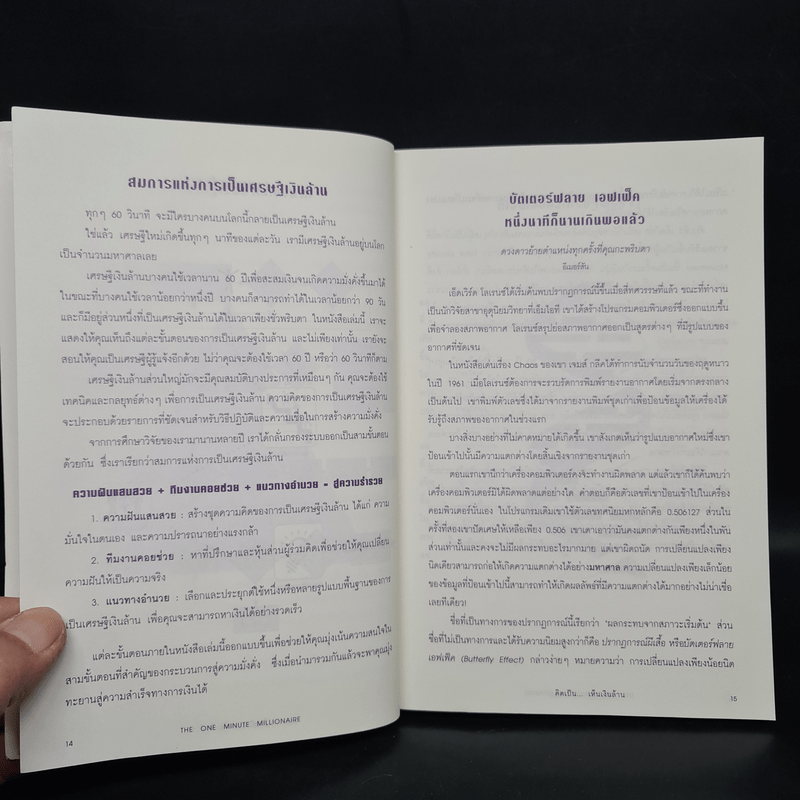 สมการแห่งการเป็นเศรษฐีเงินล้าน
ทุกๆ 60 วินาที จะมีใครบางคนบนโลกนี้กลายเป็นเศรษฐีเงินล้าน
ใช่แล้ว เศรษฐีใหม่เกิดขึ้นทุกๆ นาทีของแต่ละวัน เรามีเศรษฐีเงินล้านอยู่บนโลก
เป็นจำนวนมหาศาลเลย
เศรษฐีเงินล้านบางคนใช้เวลานาน 60 ปีเพื่อสะสมเงินจนเกิดความมั่งคั่งขึ้นมาได้
ในขณะที่บางคนใช้เวลาน้อยกว่าหนึ่งปี บางคนก็สามารถทำได้ในเวลาน้อยกว่า 90 วัน
และก็มีอยู่ส่วนหนึ่งที่เป็นเศรษฐีเงินล้านได้ในเวลาเพียงชั่วพริบตา ในหนังสือเล่มนี้ เราจะ
แสดงให้คุณเห็นถึงแต่ละขั้นตอนของการเป็นเศรษฐีเงินล้าน และไม่เพียงเท่านั้น เรายังจะ
สอนให้คุณเป็นเศรษฐีผู้รู้แจ้งอีกด้วย ไม่ว่าคุณจะต้องใช้เวลา 60 ปี หรือว่า 60 วินาทีก็ตาม
เศรษฐีเงินล้านส่วนใหญ่มักจะมีคุณสมบัติบางประการที่เหมือนๆ กัน คุณจะต้องใช้
เทคนิคและกลยุทธ์ต่างๆ เพื่อการเป็นเศรษฐีเงินล้าน ความคิดของการเป็นเศรษฐีเงินล้าน
จะประกอบด้วยรายการที่ชัดเจนสำหรับวิธีปฏิบัติและความเชื่อในการสร้างความมั่งคั่ง
จากการศึกษาวิจัยของเรามานานหลายปี เราได้กลั่นกรองระบบออกเป็นสามขั้นตอน
ด้วยกัน ซึ่งเราเรียกว่าสมการแห่งการเป็นเศรษฐีเงินล้าน
ความฝันแสนสวย + ทีมงานคอยช่วย + แนวทางอำนวย = สู่ความร่ำรวย
1. ความฝันแสนสวย : สร้างชุดความคิดของการเป็นเศรษฐีเงินล้าน ได้แก่ ความ
มั่นใจในตนเอง และความปรารถนาอย่างแรงกล้า
2. ทีมงานคอยช่วย : หาที่ปรึกษาและหุ้นส่วนผู้ร่วมคิดเพื่อช่วยให้คุณเปลี่ยน
ความฝันให้เป็นความจริง
3. แนวทางอำนวย : เลือกและประยุกต์ใช้หนึ่งหรือหลายรูปแบบพื้นฐานของการ
เป็นเศรษฐีเงินล้าน เพื่อคุณจะสามารถหาเงินได้อย่างรวดเร็ว
แต่ละขั้นตอนภายในหนังสือเล่มนี้ออกแบบขึ้นเพื่อช่วยให้คุณมุ่งเน้นความสนใจใน
สามขั้นตอนที่สำคัญของกระบวนการสู่ความมั่งคั่ง ซึ่งเมื่อนำมารวมกันแล้วจะพาคุณมุ่ง
ทะยานสู่ความสำเร็จทางการเงินได้
THE ONE MINUTE MILLIONAIRE
14
บัตเตอร์ฟลาย เอฟเฟ็ค
หนึ่งนาทีก็นานเกินพอแล้ว
ดวงดาวย้ายตำแหน่งทุกครั้งที่คุณกะพริบตา
อีเมอร์สัน
เอ็ดเวิร์ด โลเรนซ์ได้เริ่มค้นพบปรากฏการณ์นี้ขึ้นเมื่อสี่ทศวรรษที่แล้ว ขณะที่ทำงาน
เป็นนักวิจัยสาขาอุตุนิยมวิทยาที่เอ็มไอที เขาได้สร้างโปรแกรมคอมพิวเตอร์ซึ่งออกแบบขึ้น
เพื่อจำลองสภาพอากาศ โลเรนซ์สรุปย่อสภาพอากาศออกเป็นสูตรต่างๆ ที่มีรูปแบบของ
อากาศที่ชัดเจน
ในหนังสือเด่นเรื่อง Chaos ของเขา เจมส์ กลีคได้ทำการนับจำนวนวันของฤดูหนาว
ในปี 1961 เมื่อโลเรนซ์ต้องการจะรวบรัดการพิมพ์รายงานอากาศโดยเริ่มจากตรงกลาง
เป็นต้นไป เขาพิมพ์ตัวเลขซึ่งได้มาจากรายงานพิมพ์ชุดเก่าเพื่อป้อนข้อมูลให้เครื่องได้
รับรู้ถึงสภาพของอากาศในช่วงแรก
บางสิ่งบางอย่างที่ไม่คาดหมายได้เกิดขึ้น เขาสังเกตเห็นว่ารูปแบบอากาศใหม่ซึ่งเขา
ป้อนเข้าไปนั้นมีความแตกต่างโดยสิ้นเชิงจากรายงานชุดเก่า
ตอนแรกเขานึกว่าเครื่องคอมพิวเตอร์คงจะทำงานผิดพลาด แต่แล้วเขาก็ได้ค้นพบว่า
เครื่องคอมพิวเตอร์มิได้ผิดพลาดแต่อย่างใด คำตอบก็คือตัวเลขที่เขาป้อนเข้าไปในเครื่อง
คอมพิวเตอร์นั่นเอง ในโปรแกรมเดิมเขาใช้ตัวเลขทศนิยมหกหลักคือ 0.506127 ส่วนใน
ครั้งที่สองเขาปัดเศษให้เหลือเพียง 0.506 เขาเดาเอาว่ามันคงแตกต่างกันเพียงหนึ่งในพัน
ส่วนเท่านั้นและคงจะไม่มีผลกระทบอะไรมากมาย แต่เขาผิดถนัด การเปลี่ยนแปลงเพียง
นิดเดียวสามารถก่อให้เกิดความแตกต่างได้อย่างมหาศาล ความเปลี่ยนแปลงเพียงเล็กน้อย
ของข้อมูลที่ป้อนเข้าไปนี้สามารถทำให้เกิดผลลัพธ์ที่มีความแตกต่างได้มากอย่างไม่น่าเชื่อ
เลยทีเดียว!
ชื่อที่เป็นทางการของปรากฏการณ์นี้เรียกว่า "ผลกระทบจากสภาวะเริ่มต้น" ส่วน
ชื่อที่ไม่เป็นทางการและได้รับความนิยมสูงกว่าก็คือ ปรากฏการณ์ผีเสื้อ หรือบัตเตอร์ฟลาย
เอฟเฟ็ค (Butterfly Effect) กล่าวง่ายๆ หมายความว่า การเปลี่ยนแปลงเพียงน้อยนิด
คิดเป็น... เห็นเงินล้าน
15